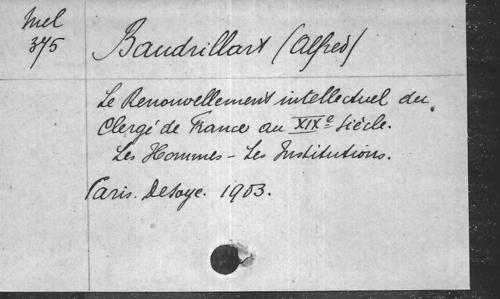 Mel
375
Baudrillart (Alfred)
Le Renouvellement intellectuel du
Clergé de France au XIXe Siècle.
Les Hommes - Les Institutions.
Paris. Desoye. 1903.